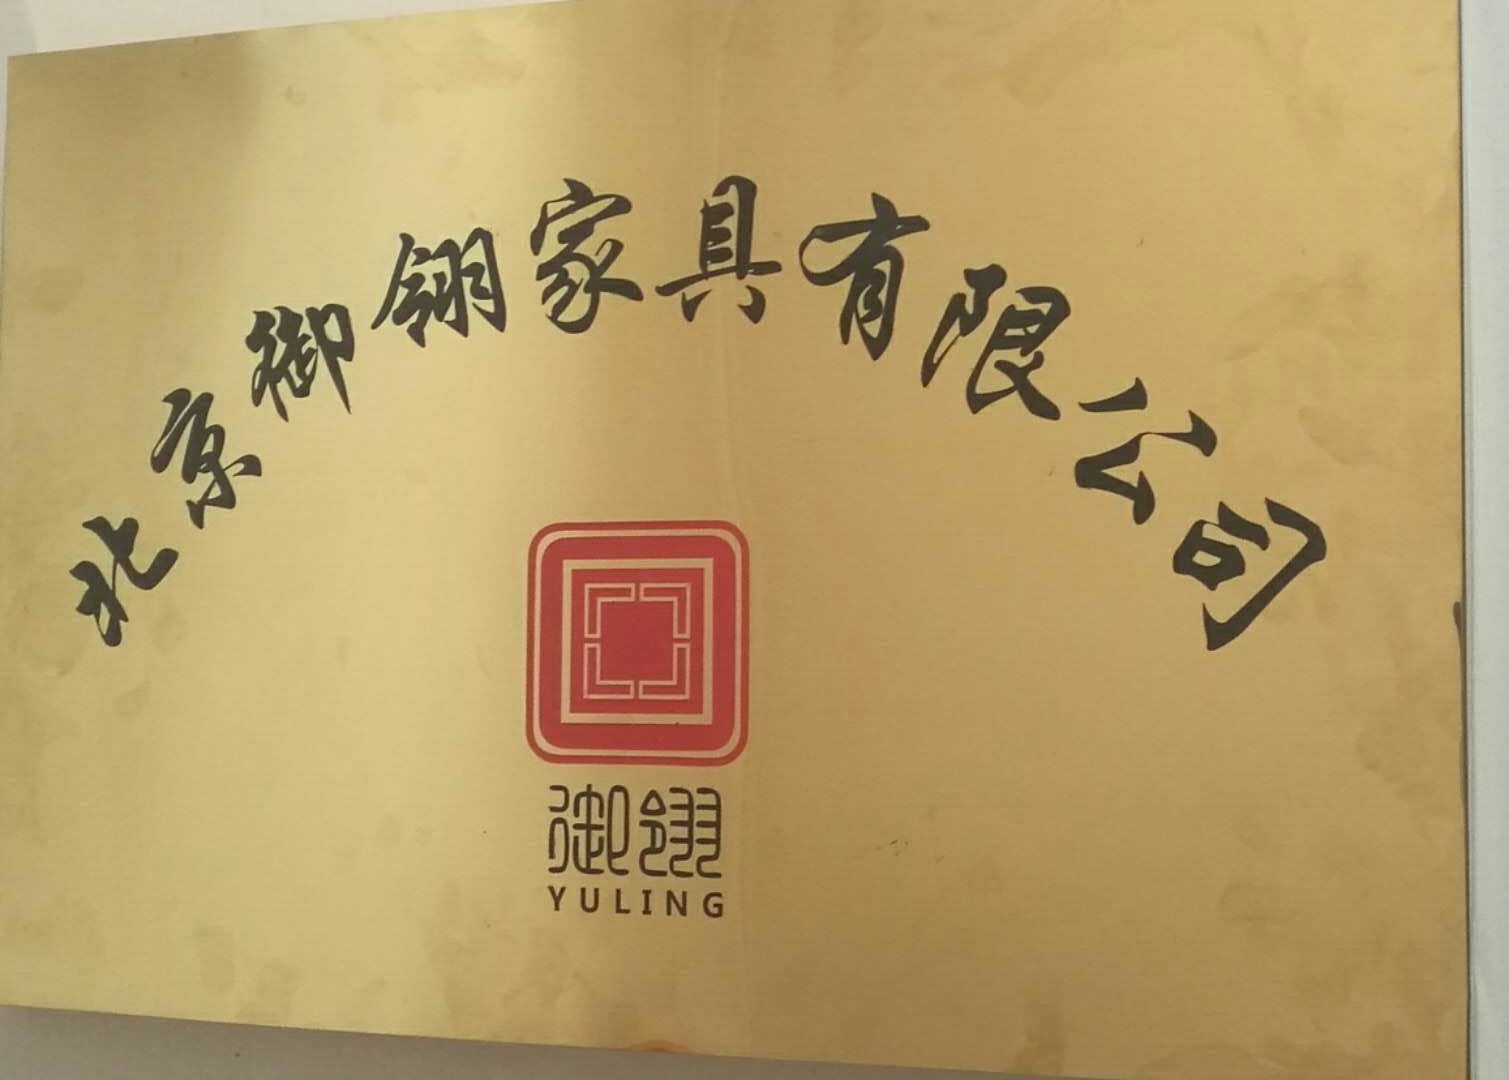 北京御翎家具有限公司
御翎
YULING